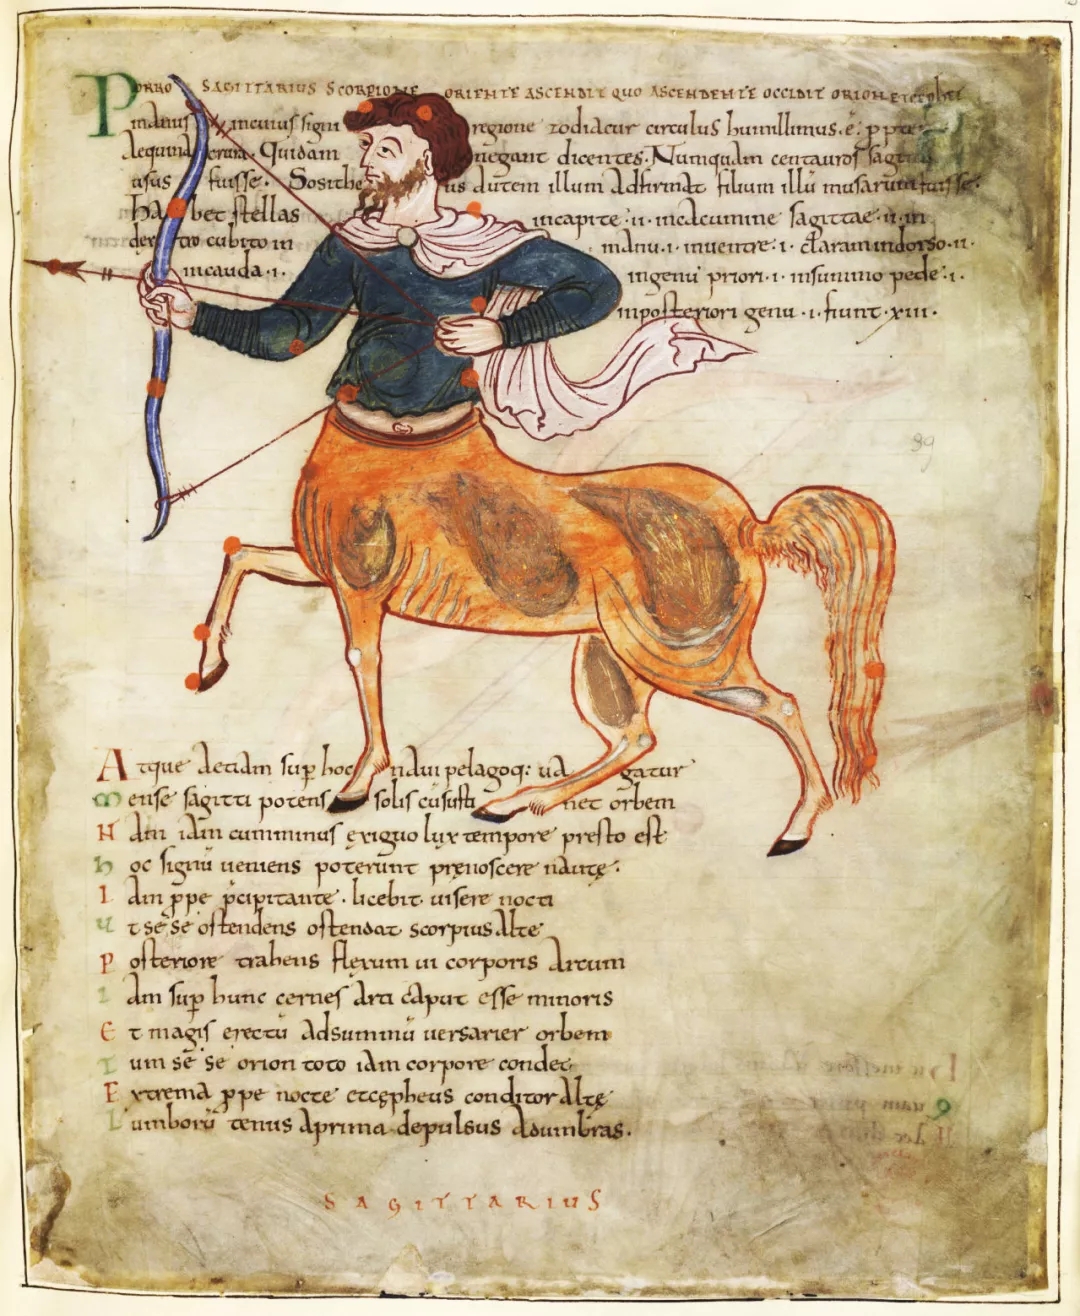 PORRO SAGITTARIUS SCORPIONE ORIENTE ASCENDIT QUO ASCENDENTE OCCIDIT ORION et cephei
manus in cuius signi regione zodiacur circulus humillimus .e.
Quidam negant dicentes. Numquam centauros sagittis
usus fuisse. Sositheus autem illum adfirmat filium illū musarum fuisse.
habet stellas in capite .ii. in acumine sagittae .ii. in
dextro cubito in manu .i. in uentre .i. in dorso .ii.
in cauda .i. in genu priori .i. in summo pede .i.
in posteriori genu .i. fiunt .xiii.
39
Atque etiam sup hoc naui pelagoq: uagatur
mense sagitti potens solis cū nec orbem
Nam iam cum minus exiguo lux tempore presto est
hoc signū ueniens poterunt prenoscere naute.
Iam ppe pcipitante. licebit uisere nocti
ut sese ostendens ostendat scorpius alte
Posteriore trahens flexum ui corporis arcum
Iam sup hunc cernes arti caput esse minoris
Et magis erectū ad summū uersarier orbem
Tum sese orion toto iam corpore condet
Extrema ppe nocte et cepheus conditor alte
Lumborū tenus a prima depulsus ad umbras.
SAGITTARIUS